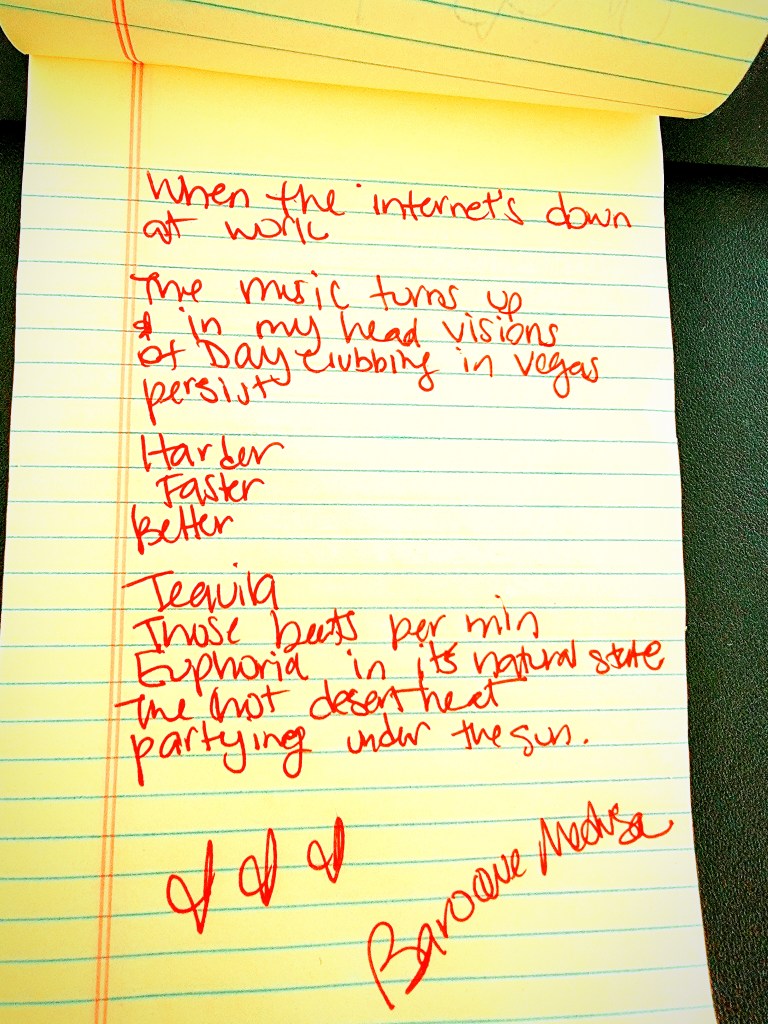 When the internet's down
at work
The music turns up
& in my head visions
of Day clubbing in Vegas
persist
Harder
Faster
Better
Tequila
Those beats per min
Euphoria in its natural state
The hot desert heat
partying under the sun.
Baroque Medusa